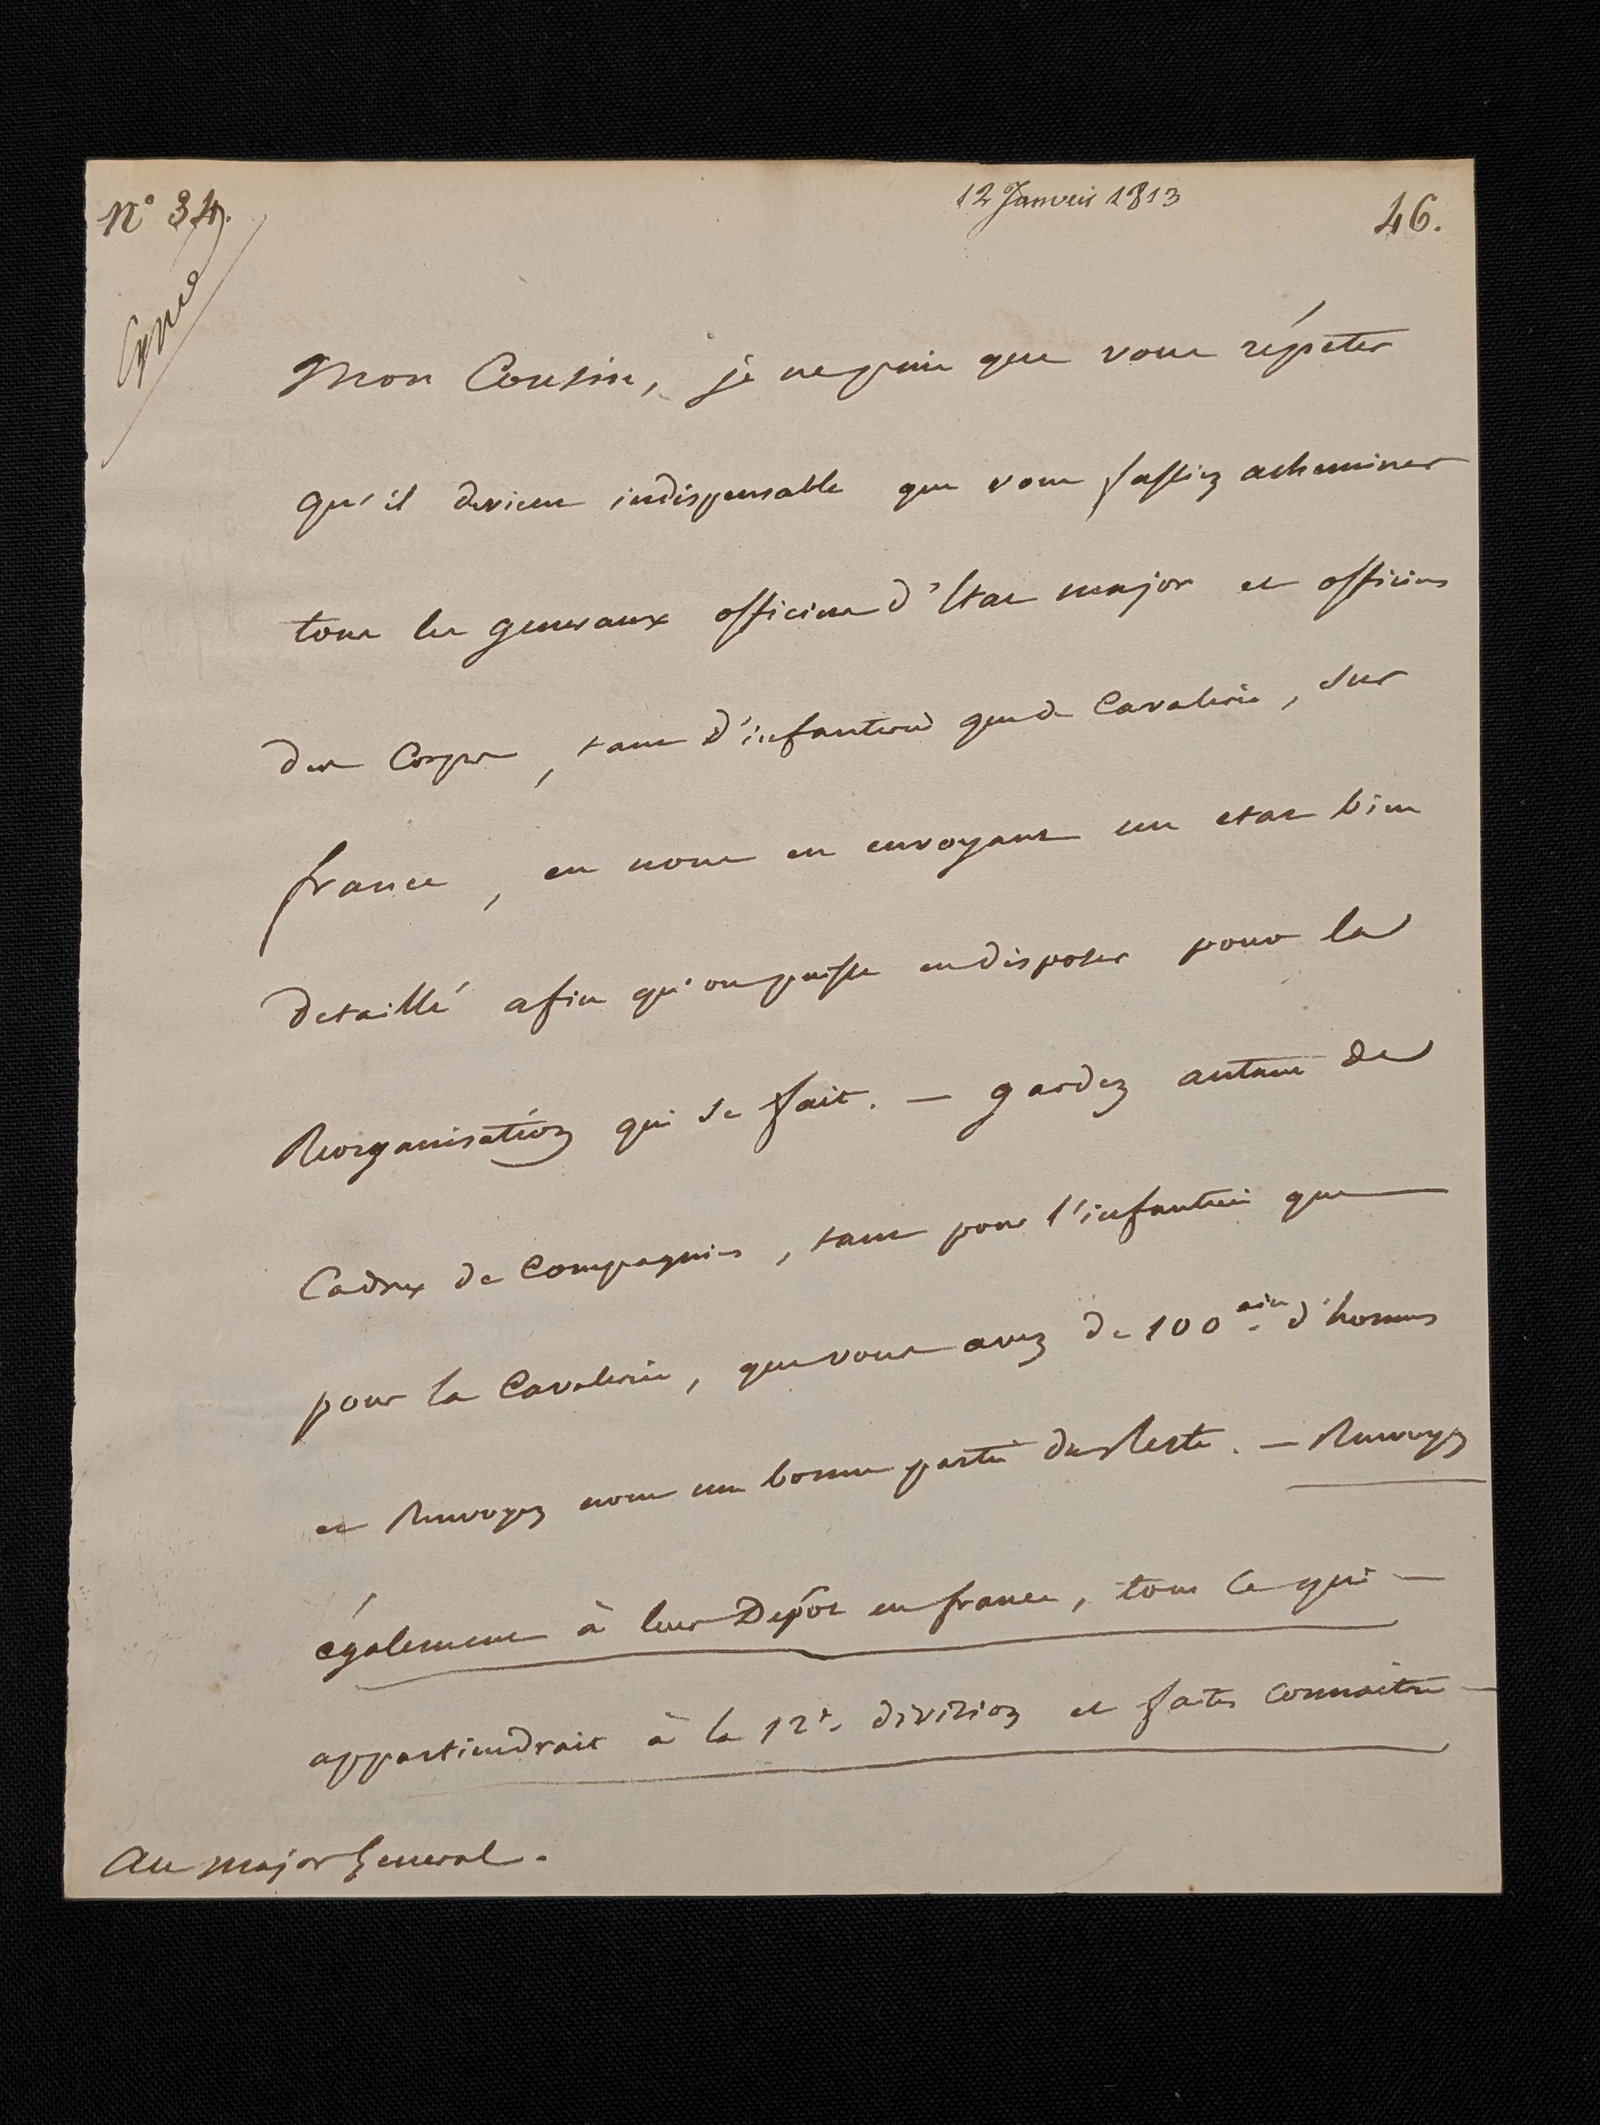 N° 34.
12 Janvier 1813
46.
Mon Cousin, je ne puis que vous répeter
qu'il devient indispensable que vous fassiez acheminer
tous les generaux officiers d'Etat major et officiers
des Corps, tant d'infanterie que de Cavalerie, sur
france, en nous en envoyant un etat bien
detaillé afin qu'on puisse en disposer pour la
Reorganisation qui se fait. — gardez autant de
Cadres de Compagnies, tant pour l'infanterie que
pour la Cavalerie, que vous avez de 100aine d'hommes
et Renvoyez nous une bonne partie du Reste. — Renvoyez
également à leur Dépôt en france, tout ce qui —
appartiendrait à la 12e. division et faites connaitre —
Au major General.